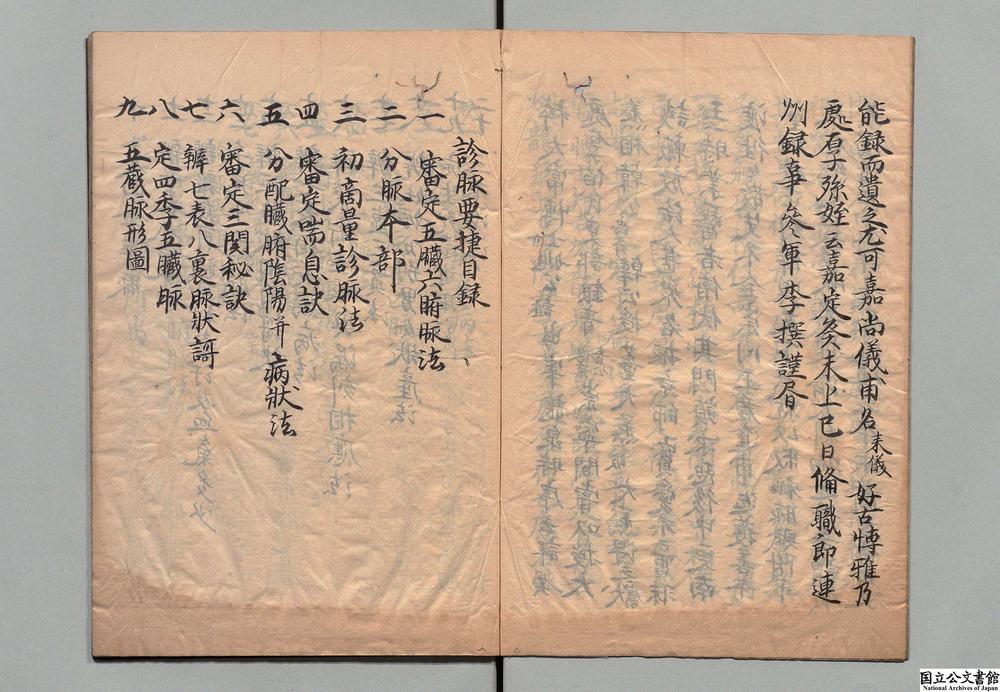 能録而遺之尤可嘉尚儀甫名耒儀好古博雅乃
處厚子弥姪云嘉定癸未上巳日脩職郎連
州録事參軍李撰謹書
診脉要捷目録
一 審定五臟六腑脉法
二 分脉本部
三 初商量診脉法
四 審定喘息訣
五 分配臟腑陰陽并病狀法
六 審定三関秘訣
七 辨七表八裏脉狀謌
八 定四季五臟脉
九 五蔵脉形圖
国立公文書館
National Archives of Japan